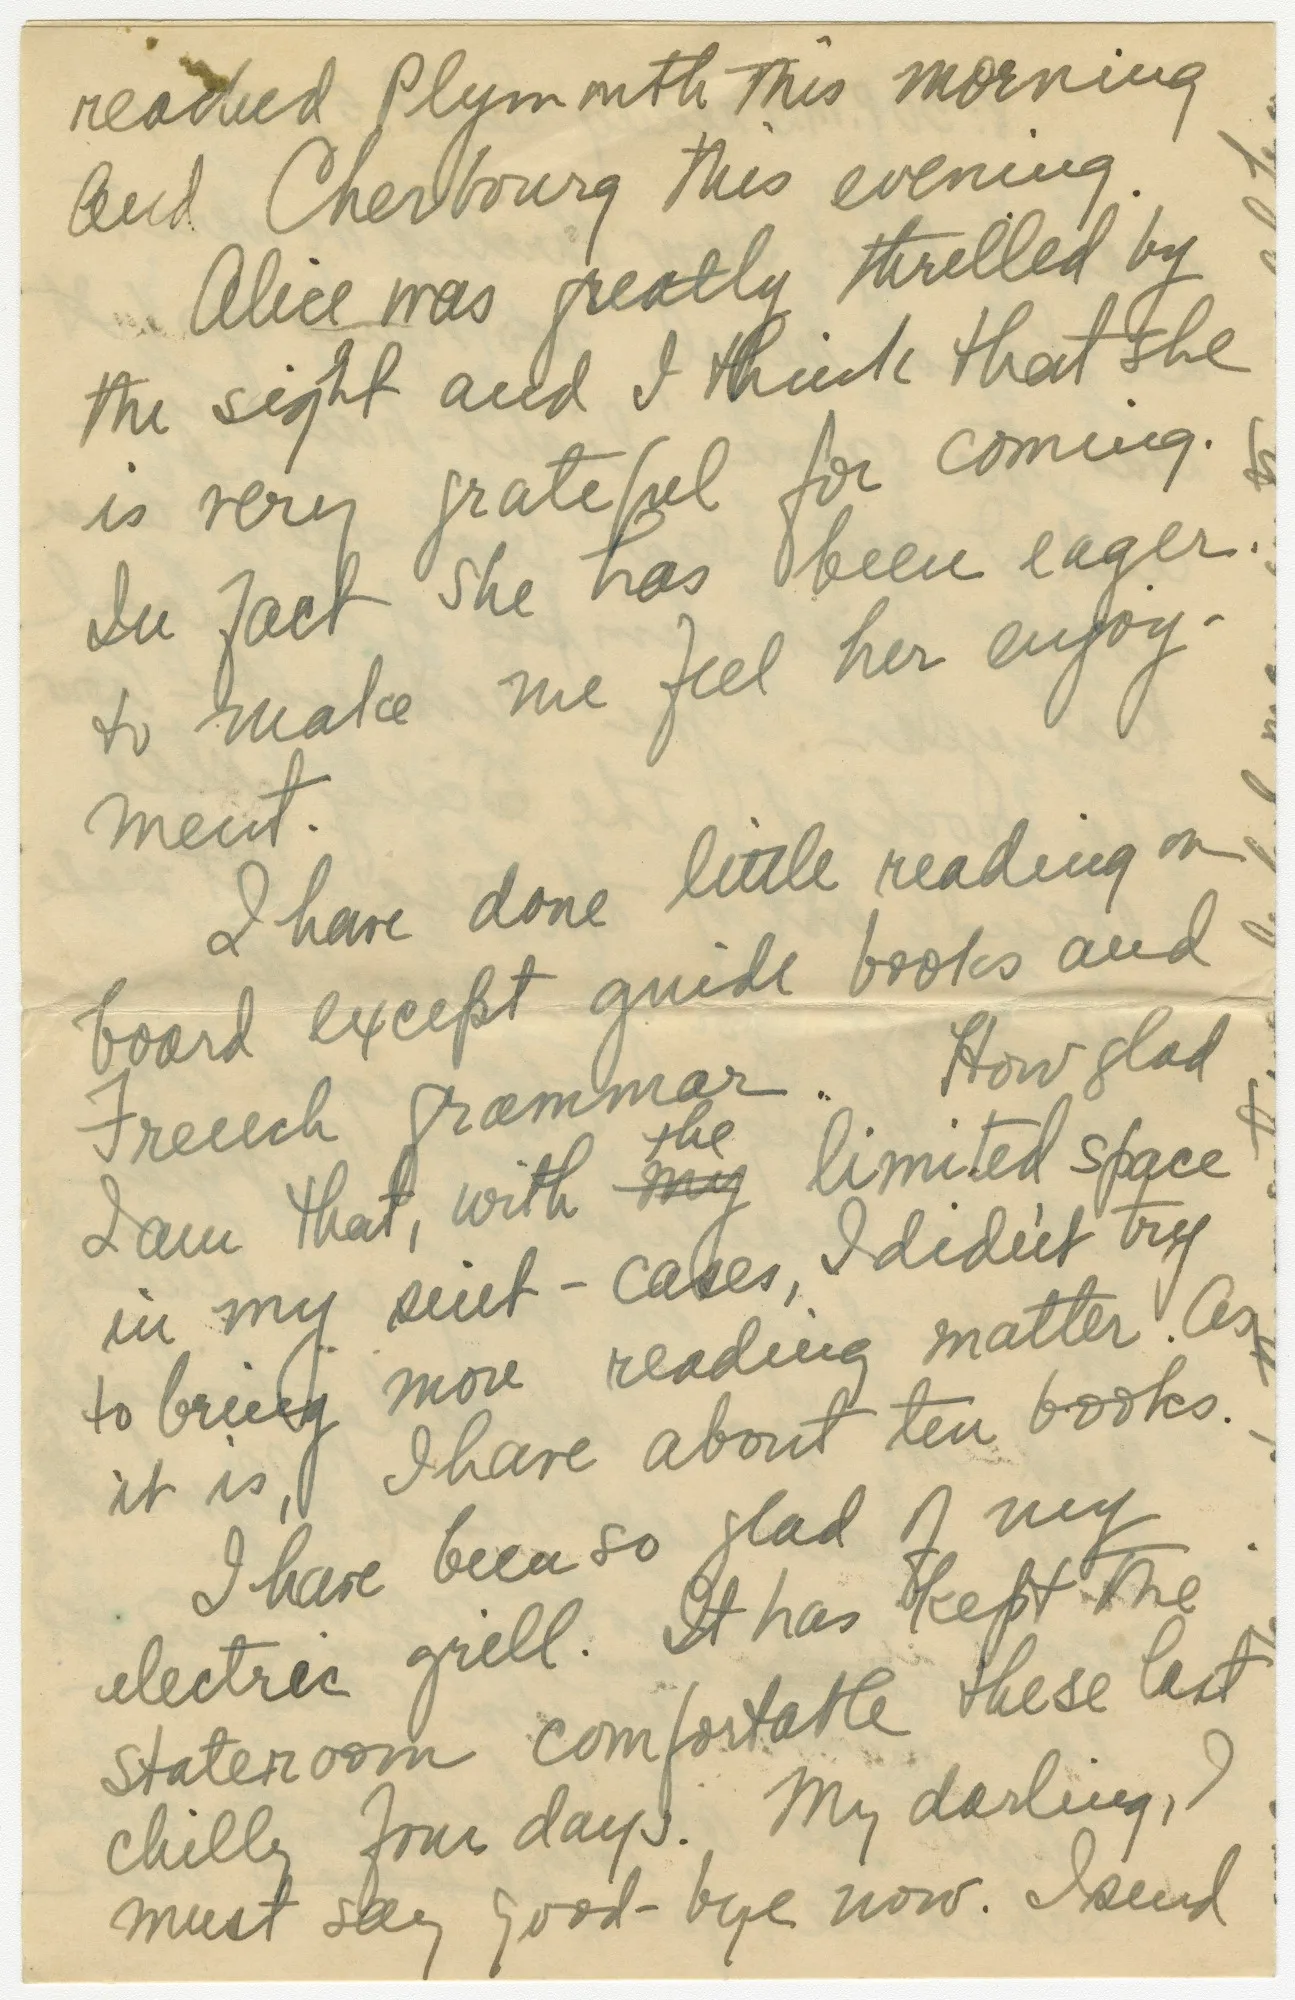 reached Plymouth this morning
and Cherbourg this evening.
Alice was greatly thrilled by
the sight and I think that she
is very grateful for coming.
In fact she has been eager
to make me feel her enjoy-
ment.
I have done little reading on
board except guide books and
French grammar. How glad
the
I am that, with my limited space
in my suit-cases, I didn't try
to bring more reading matter. As
it is, I have about ten books.
I have been so glad of my
electric grill. It has kept the
stateroom comfortable these last
chilly four days. My darling, I
must say good-bye now. I send